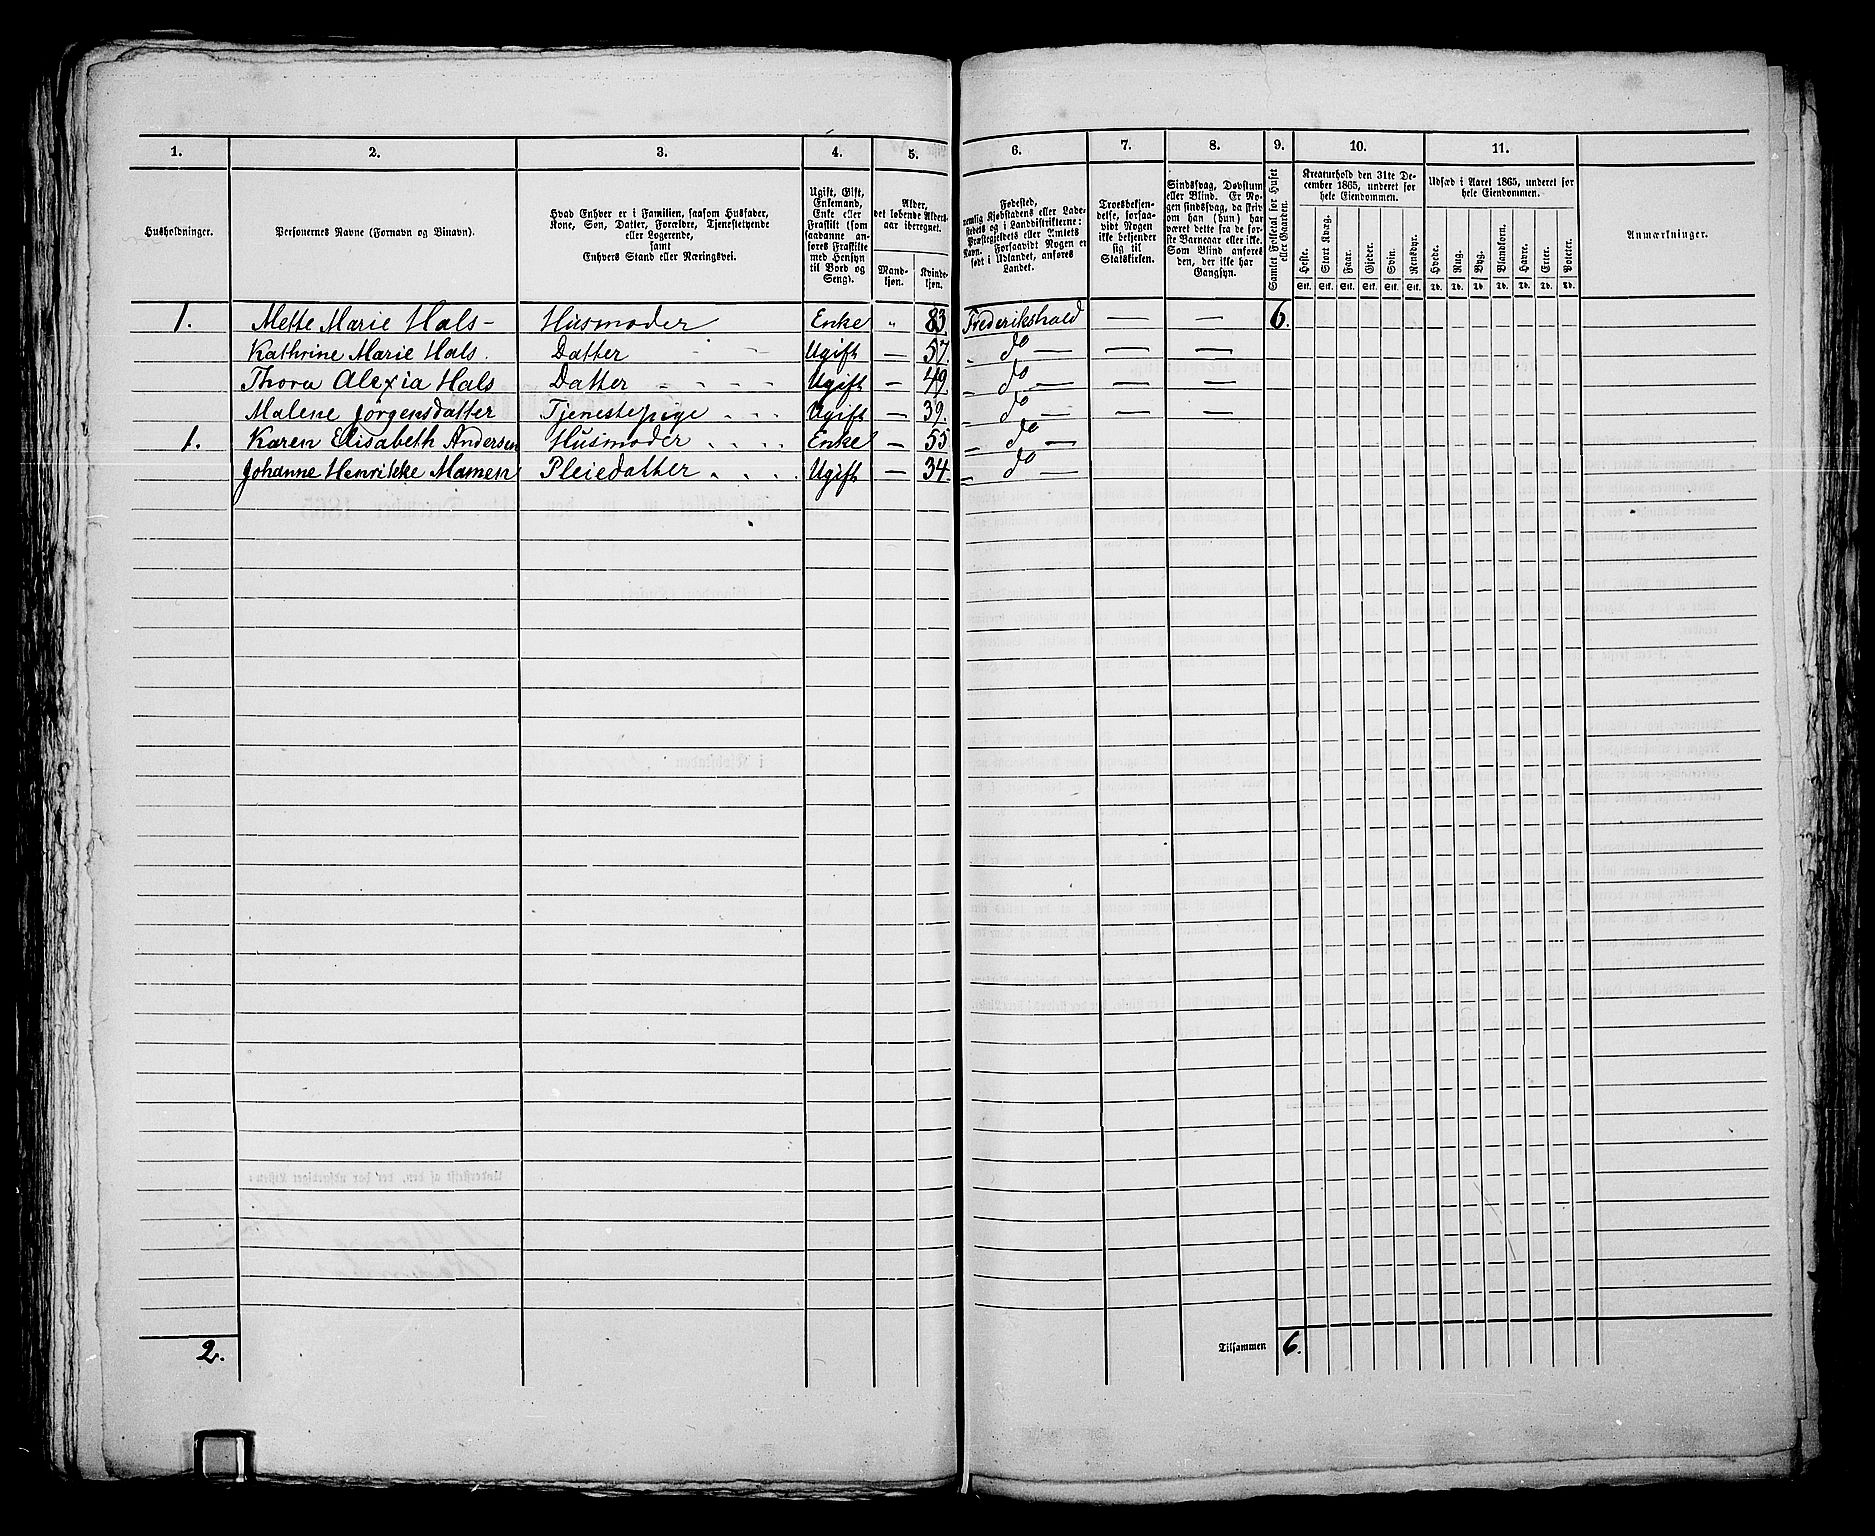 1. 2. 3. 4. 5. 6. 7. 8. 9. 10. 11.
Husholdninger.
Personernes Navne (Fornavn og Binavn).
Hvad Enhver er i Familien, saasom Husfader,
Kone, Søn, Datter, Forældre, Tjenestetyende
eller Logerende,
samt
Enhvers Stand eller Næringsvei.
Ugift, Gift,
Enkemand,
Enke eller
Fraskilt (som
saadanne an-
føres Fraskilte
med Hensyn
til Bord og
Seng).
Alder,
det løbende Alders-
aar iberegnet.
Mand-
kjøn.
Kvinde-
kjøn.
Fødested,
nemlig Kjøbstadens eller Lade-
stedets og i Landdistrikterne:
Præstegjeldets eller Amtets
Navn. Forsaavidt Nogen er
født i Udlandet, anføres
Landet.
Troesbekjen-
delse, forsaa-
vidt Nogen
ikke bekjender
sig til
Statskirken.
Sindssvag, Døvstum
eller Blind. Er No-
gen sindssvag, da skriv
om han (hun) har
været dette fra de før-
ste Barneaar eller ikke.
Som Blind anføres
den, der ikke har
Gangsyn.
Samlet Folketal for Huset
eller Gaarden.
Kreaturhold den 31te De-
cember 1865, underet for
hele Eiendommen.
Heste. Stort Kvæg. Faar. Gjeder. Svin. Rensdyr.
Stk. Stk. Stk. Stk. Stk. Stk.
Udsæd i Aaret 1865, underet for
hele Eiendommen.
Hvede. Rug. Byg. Blandkorn. Havre. Erter. Poteter.
Td. Td. Td. Td. Td. Td. Td.
Anmærkninger.
1. Mette Marie Hals - Husmoder Enke " 83 Frederikshald — — 6.
Kathrine Marie Hals. Datter Ugift — 57. " do — — —
Thora Alexia Hals Datter Ugift — 49. " do — — —
Malene Jörgensdatter Tjenestepige Ugift — 39. " do — — —
1. Karen Elisabeth Andersen Husmoder Enke — 55 " do —
Johanne Henrikke Mamen Pleiedatter Ugift — 34. " do —
2.
Tilsammen 6.